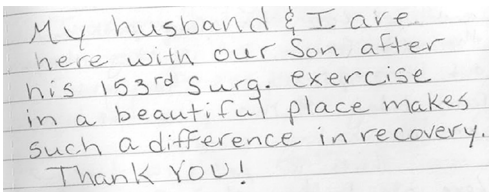 My husband & I are
here with our Son after
his 153rd Surg. exercise
in a beautiful place makes
such a difference in recovery.
Thank You!